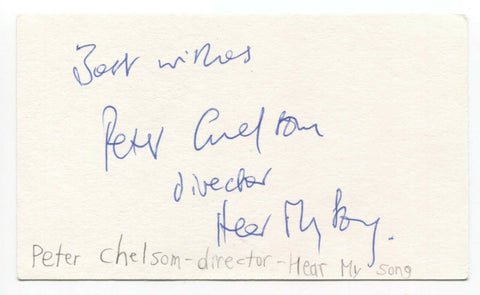 Best wishes
Peter Chelsom
director
Hear My Song.
Peter Chelsom-director-Hear My song